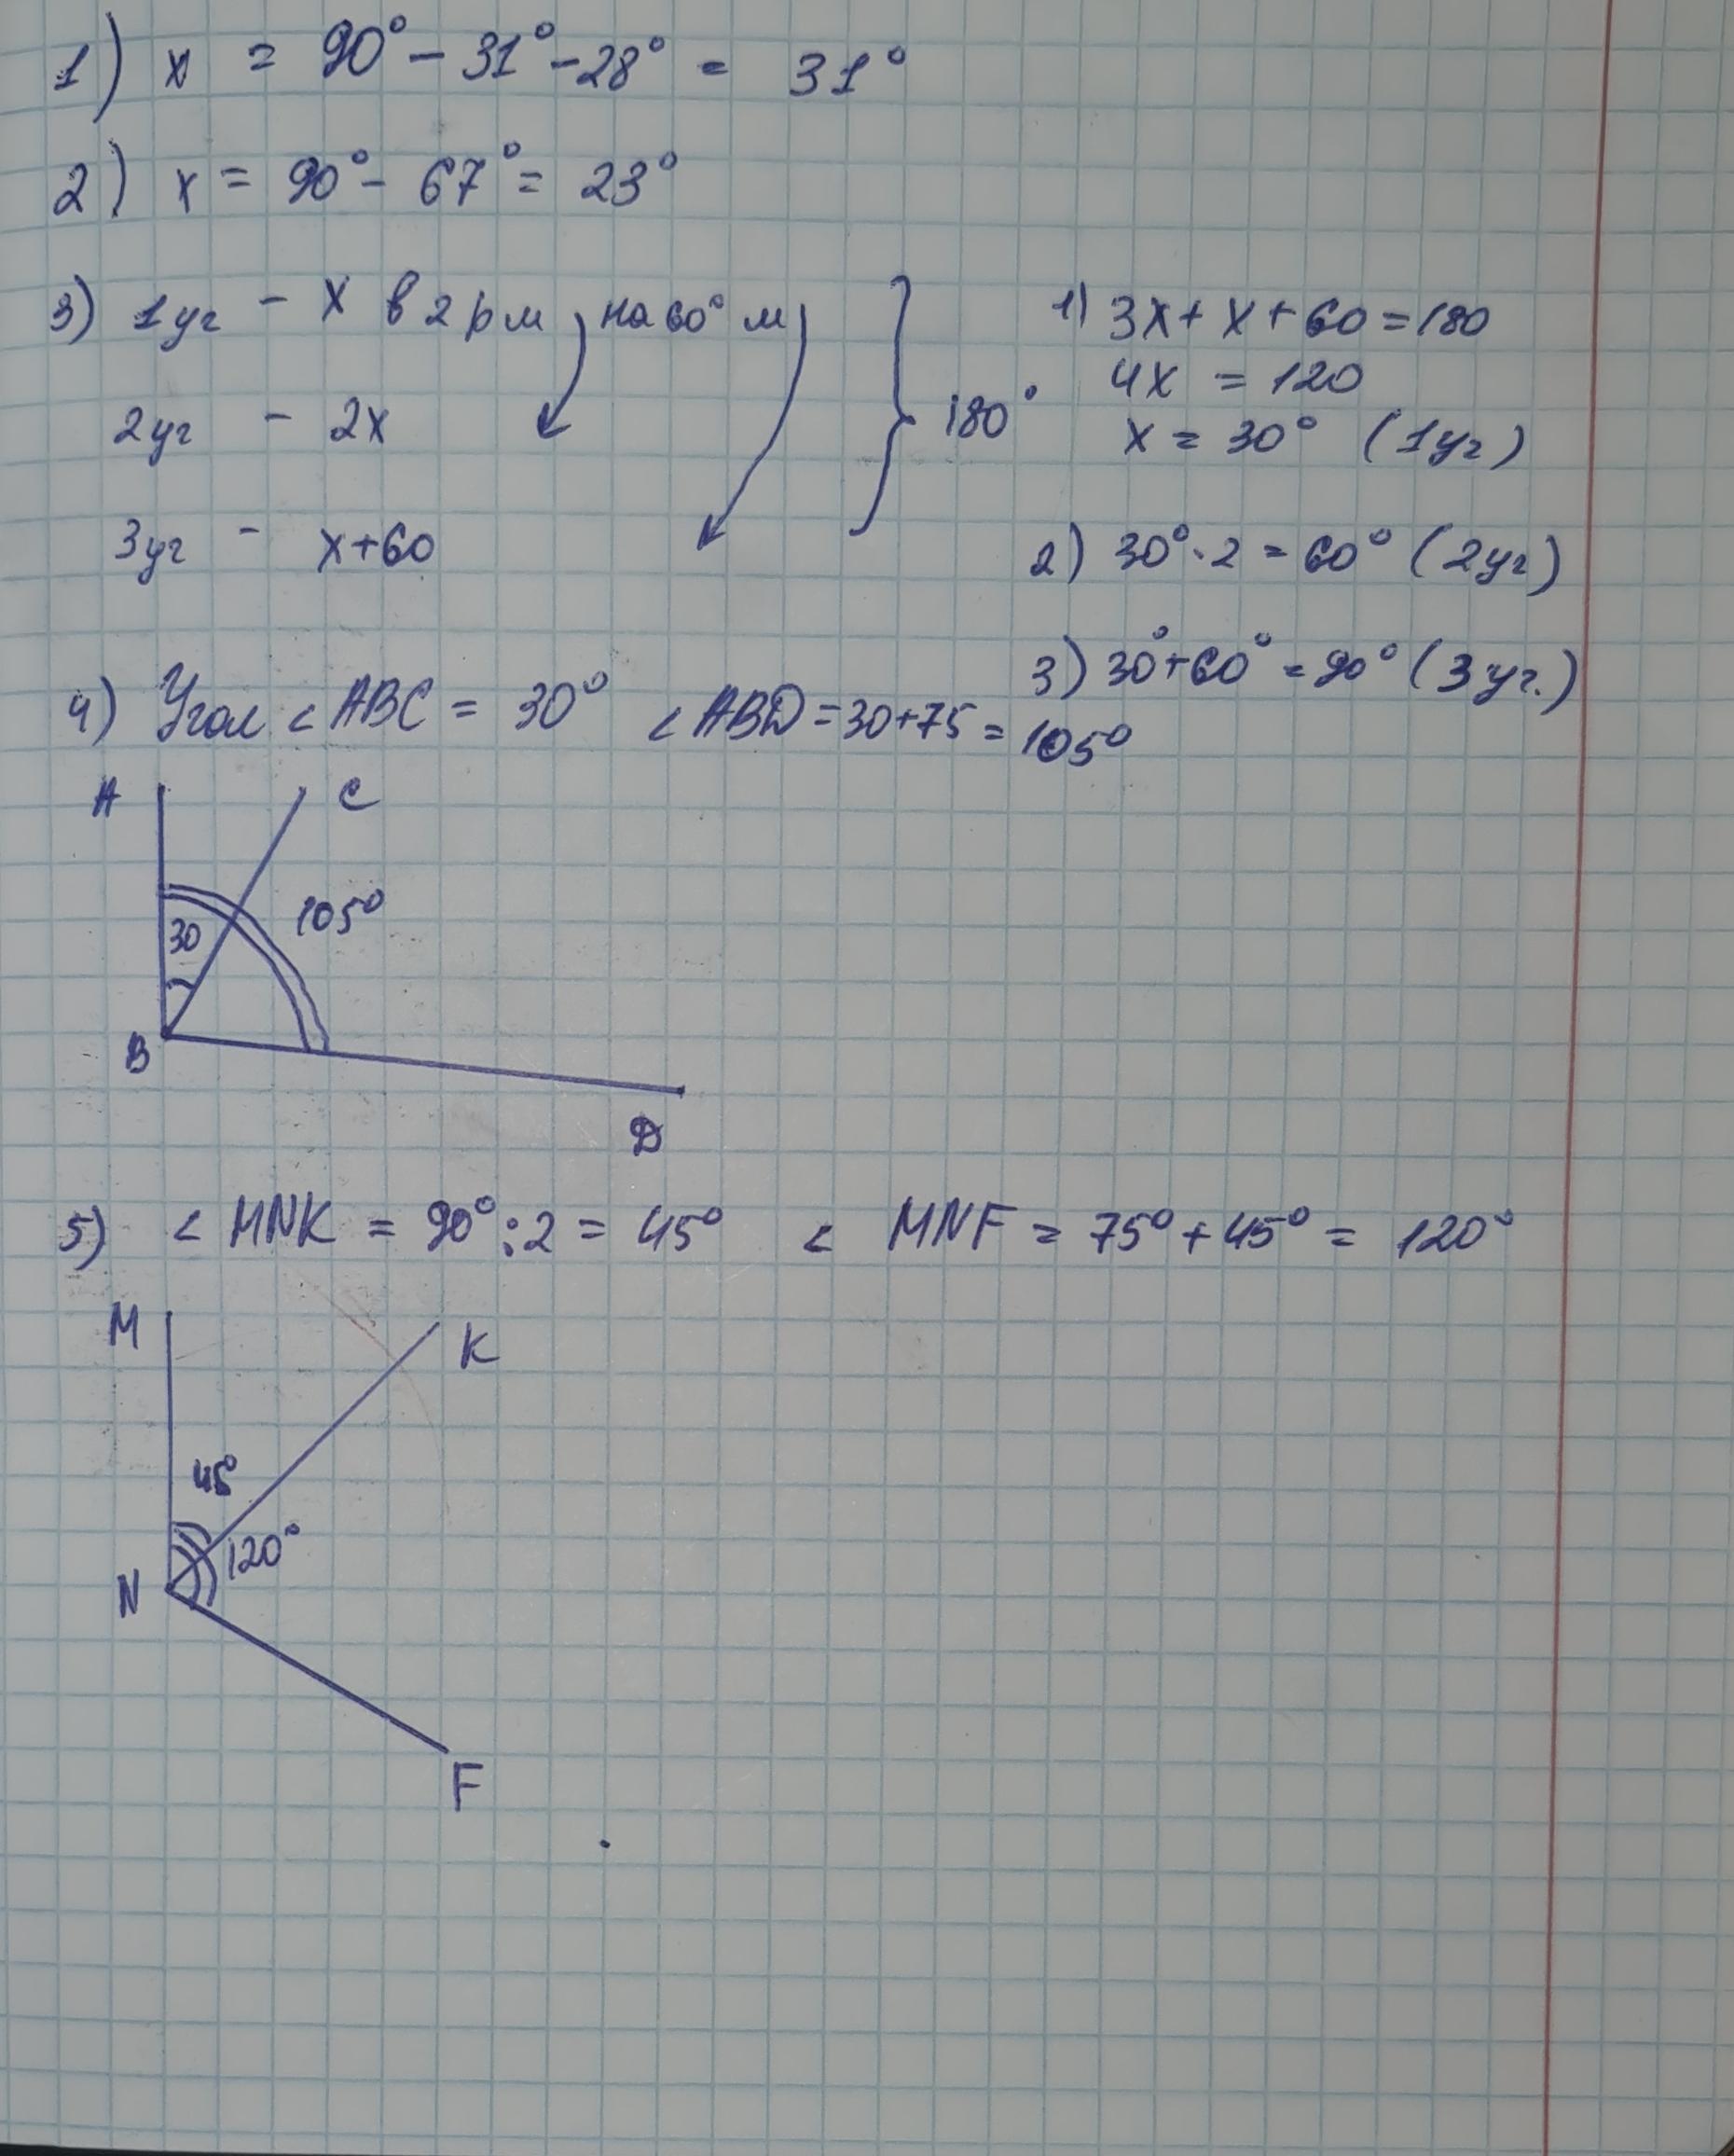 1) x = 90° - 31° - 28° = 31°
2) x = 90° - 67° = 23°
3) 1уг - x в 2 р м на 60° м
2уг - 2x
3уг - x+60
180°
1) 3x + x + 60 = 180
4x = 120
x = 30° (1уг)
2) 30° · 2 = 60° (2уг)
3) 30°+60° = 90° (3уг.)
4) Угол < ABC = 30° < ABD = 30+75 = 105°
A C
30 105°
B
D
5) < MNK = 90° : 2 = 45° < MNF = 75° + 45° = 120°
M K
45°
120°
N
F